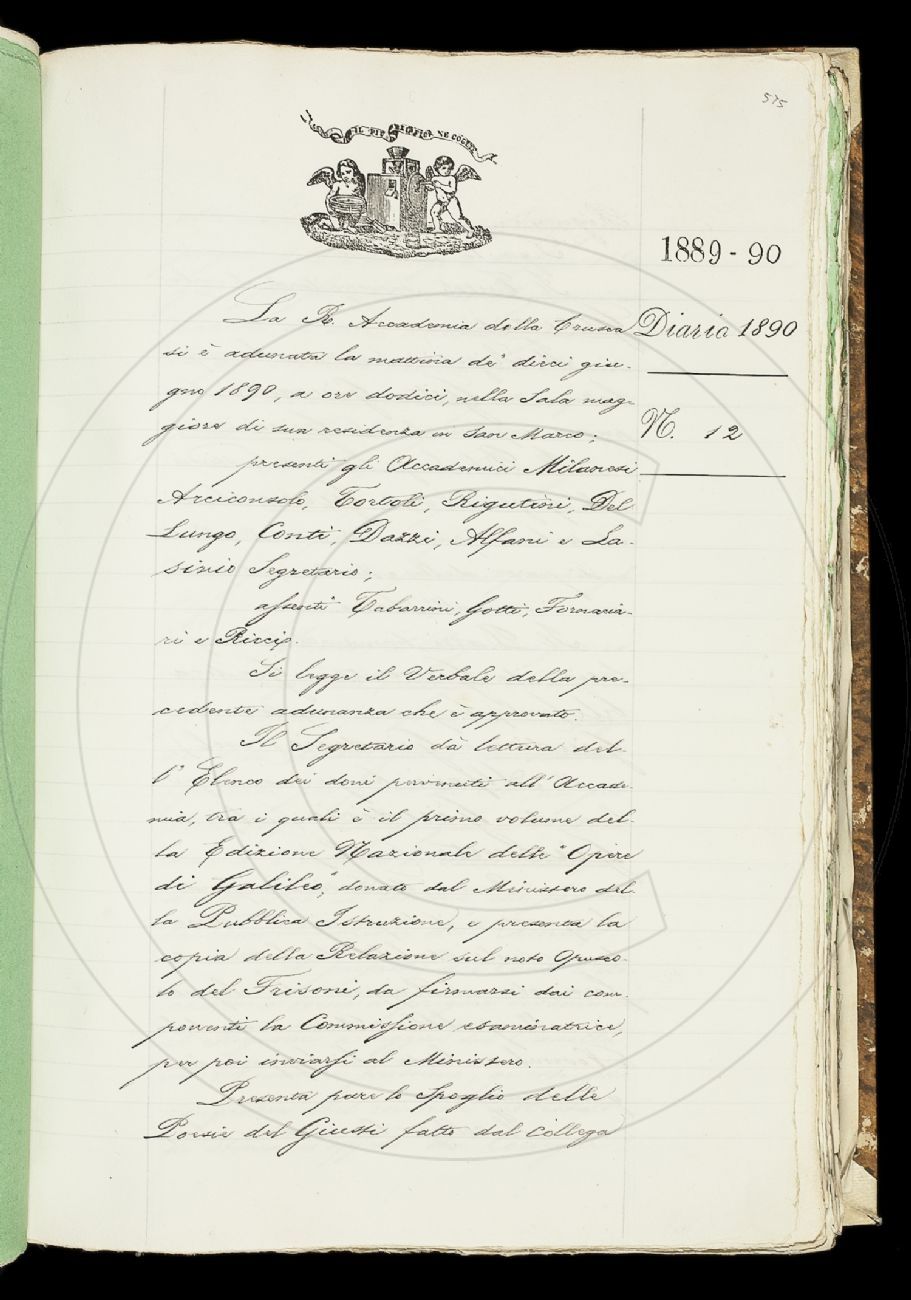 575
IL PIÙ BEL FIOR NE COGLIE
1889-90
Diaria 1890
N. 12
La R. Accademia della Crusca
si è adunata la mattina de' dieci giu-
gno 1890, a ore dodici, nella Sala mag-
giore di sua residenza in San Marco;
presenti gli Accademici Milanesi
Arciconsolo, Tortoli, Rigutini, Del
Lungo, Conti, Dazzi, Alfani e La-
sinio Segretario;
assenti Tabarrini, Gotti, Fornacia-
ri e Ricci.
Si legge il Verbale della pre-
cedente adunanza che è approvato.
Il Segretario dà lettura del-
l'Elenco dei doni pervenuti all'Accade-
mia, tra i quali è il primo volume del-
la Edizione Nazionale delle "Opere
di Galileo", donato dal Ministero del-
la Pubblica Istruzione, e presenta la
copia della Relazione sul noto Opusco-
lo del Frisoni, da firmarsi dai com-
ponenti la Commissione esaminatrice,
per poi inviarsi al Ministero.
Presenta pure lo Spoglio delle
Poesie del Giusti fatto dal Collega